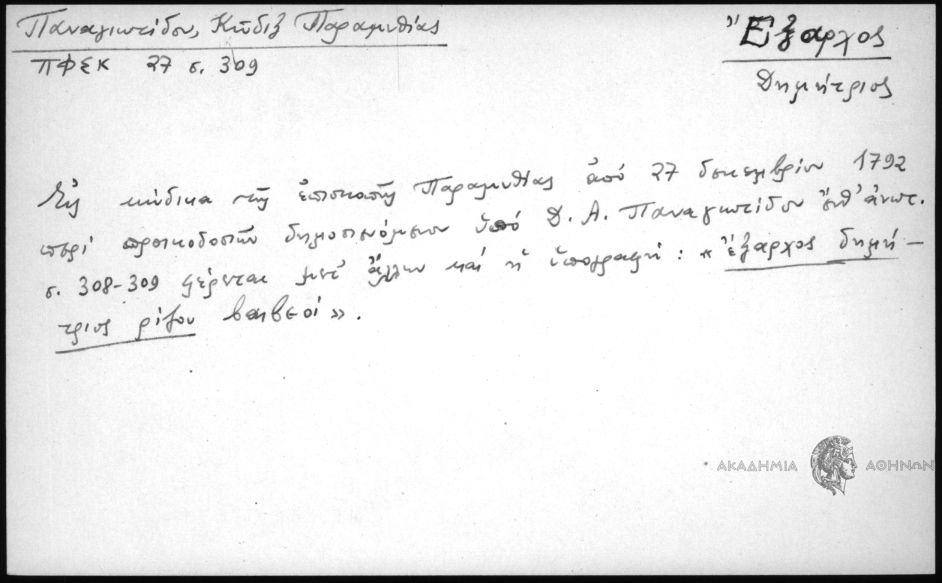 Παναγιωτίδου, Κῶδιξ Παραμυθίας
ΠΦΣΚ 27 σ. 309
Ἔξαρχος
Δημήτριος
Εἰς κώδικα τῆς ἐπισκοπῆς Παραμυθίας ἀπό 27 δεκεμβρίου 1792
περί προικοδοσιῶν δημοσιευόμενον ὑπό Δ. Α. Παναγιωτίδου ἔνθ' ἀνωτ.
σ. 308-309 φέρεται μετ' ἄλλων καί ἡ ὑπογραφή: «ἔξαρχος δημή-
τριος ρίζου βεβεοί».
ΑΚΑΔΗΜΙΑ ΑΘΗΝΩΝ